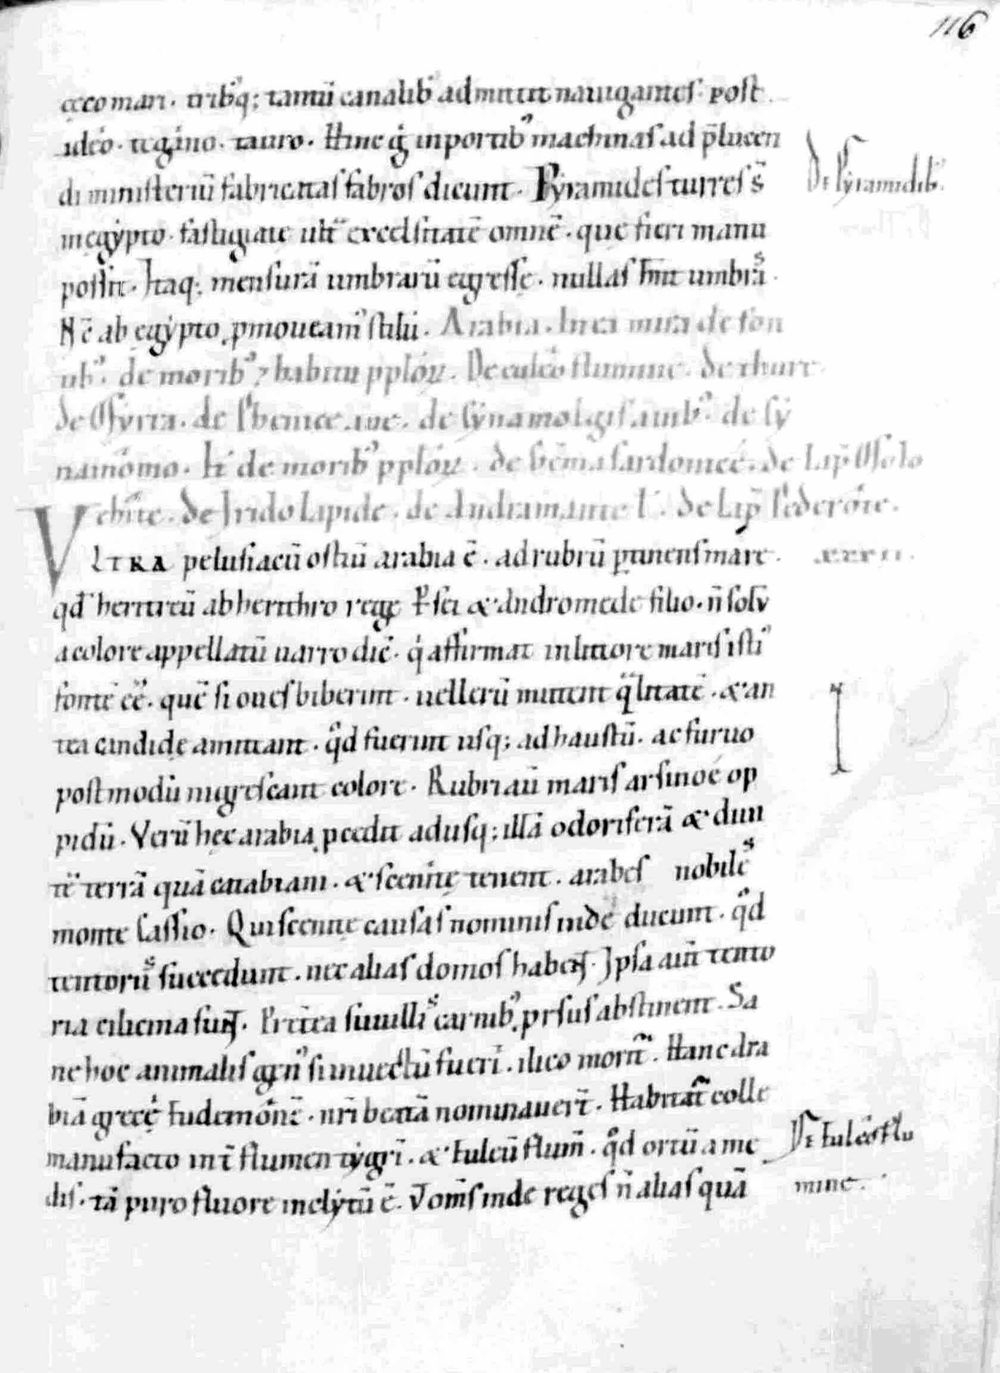 116
cęco mari. tribꝰq; tam̄ canalibꝰ admittit nauigantes. post
ideo. tegano. tauro. Hinc g̊ in portibꝰ machinas ad p̄lucen
di ministeriū fabricatas faros dicunt. Pyramides turres s̄
De Pyramidibꝰ.
in egypto. fastigiatę ult̄ excelsitatē omnē. quę fieri manu
possit. Itaq; mensurā umbrarū egressę. nullas hn̄t umbrā.
Nc̄ ab egypto p̱moueamꝰ stilū. Arabia. In ea mira de fon
tibꝰ. de moribꝰ ⁊ habitu pplōꝝ. De euleō flumine. de thure
de Myrra. de Phenice aue. de cynamolgis auibꝰ. de cy
namomo. It̄ de moribꝰ pplōꝝ. de gēma sardonice. de Lap̄ Molo
chite. de Iride lapide. de Andramante l. de Lap̄ Pederōte.
VLTRA pelusiacū ostiū arabia ē. ad rubrū p̱tinens mare.
xxxvi.
qd̄ heritreū ab herithro rege Persei & Andromede filio. n̄ solū
a colore appellatū uarro dic̄. q̇ affirmat in littore maris istiꝰ
fontē eē. quē si oues biberint. uellerū mutent q̄litatē. & an
tea candidę amittant. q̊d fuerint usq; ad haustū. ac furuo
postmodū nigrescant colore. Rubri aū maris arsinoe op
pidū. Verū hęc arabia p̱cedit adusq; illā odoriferā & diui
tē terrā quā catabiani. & scenitę tenent. arabes nobiles
monte Cassio. Qui scenitę causas nominis inde ducunt. q̊d
tentoriis succedunt. nec alias domos habent. Ipsa aūt tento
ria cilicina sunt. Pretea suillis carnibꝰ prsus abstinent. Sa
ne hoc animalis genꝰ si inuectū fueri. ilico morit̄. Hanc ara
biā grecę eudemonē. nr̄i beatā nominauert̄. Habitat̄ colle
manu facto int̄ flumen tygri. & euleū flum̄. q̊d ortū a me
De Euleo flu
mine.
dis. tā puro fluore inclytū ē. Vt om̄s inde reges n̄ alias quā